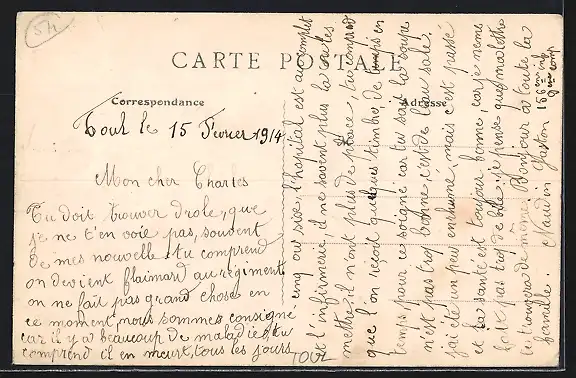 54
CARTE POSTALE
Correspondance
Adresse
Toul le 15 Fevrier 1914
Mon cher Charles
Tu doit trouver drole, que
je ne t'en voie pas, souvent
de mes nouvelle. tu comprend
on devient flaimard au regiment
on ne fait pas grand chose en
ce moment, nous sommes consigne
car il y a beaucoup de maladie, tu
comprend il en meurt, tous les jours
cinq ou size, l'hopital est au complet
et l'infirmerie il ne savent plus la ou les
mettre il n'ont plus de place, tu comprend
que l'on reçoit quelques timbre de temps en
temps pour ce soigné car tu sait la soupe
n'est pas trop bonne c'est de l'eau sale,
j'ai été un peu enrhumé, mais c'est passé
et la santé est toujours bonne, car je ne me
fait pas trop de bile, je pense que ma lettre
te trouvera de même. Bonjour a toute la
famille. Naudin Gaston 156eme inf
9eme comp
TOUL